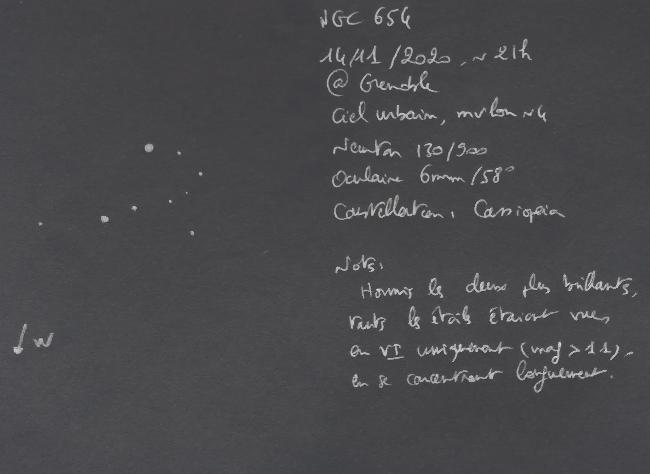 NGC 654
14/11/2020, ~21h
@ Grenoble
Ciel urbain, mvlon ~4
Newton 130/900
Oculaire 6mm/58°
Constellation: Cassiopeia
Nots:
Hormis les deux plus brillants,
toutes les étoiles étaient vues
en VI uniquement (mag > 11).
en se concentrant longuement.
W